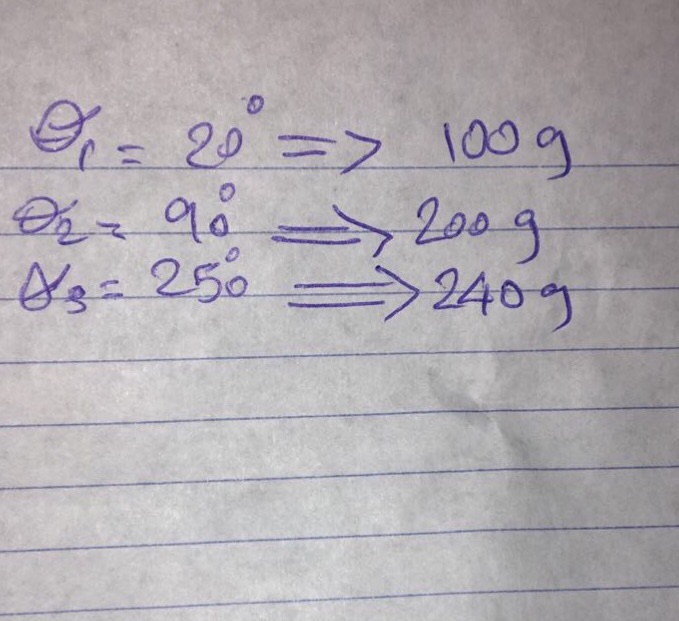 θ₁ = 20° => 100g
θ₂ = 90° => 200g
θ₃ = 250° => 240g